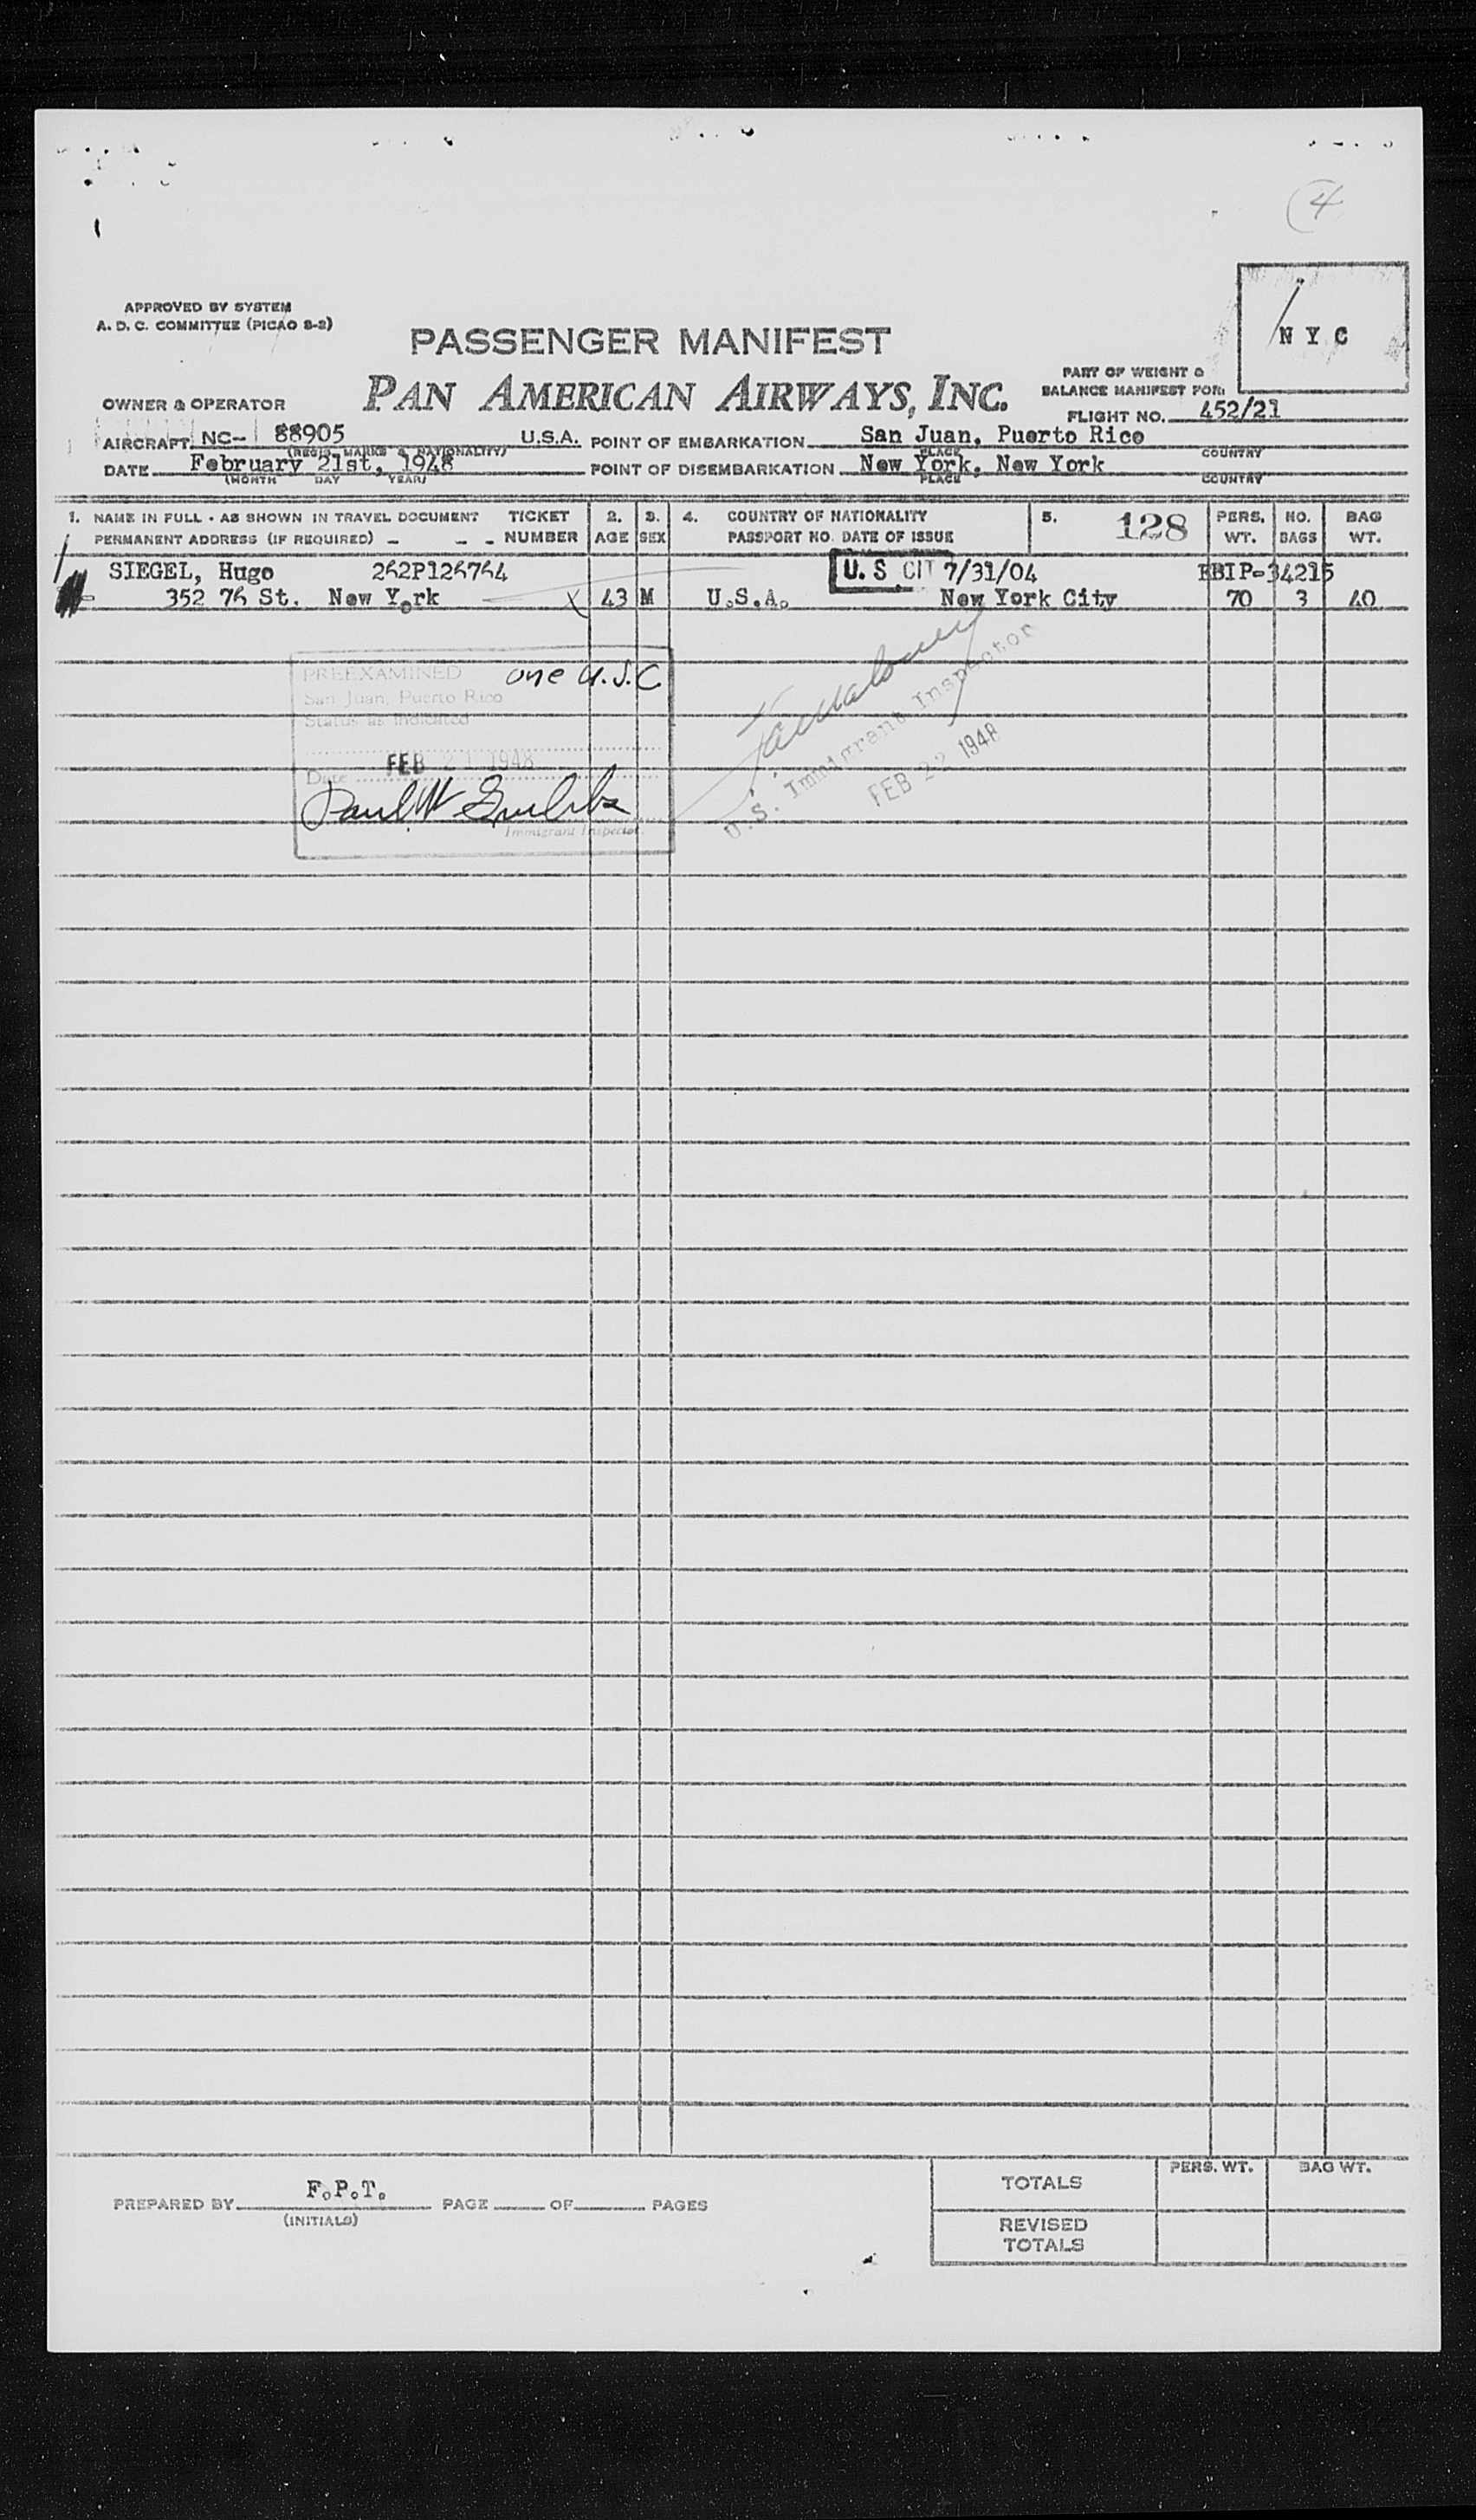 4
APPROVED BY SYSTEM
A. D. C. COMMITTEE (PICAO S-2)
N Y C
PASSENGER MANIFEST
PAN AMERICAN AIRWAYS, INC.
PART OF WEIGHT &
BALANCE MANIFEST FOR:
OWNER & OPERATOR
FLIGHT NO. 452/21
AIRCRAFT NC- 88905 U.S.A. POINT OF EMBARKATION San Juan, Puerto Rico
(REGIS. MARKS & NATIONALITY) PLACE COUNTRY
DATE February 21st, 1948 POINT OF DISEMBARKATION New York, New York
(MONTH DAY YEAR) PLACE COUNTRY
1. NAME IN FULL - AS SHOWN IN TRAVEL DOCUMENT TICKET 2. 3. 4. COUNTRY OF NATIONALITY 5. 128 PERS. NO. BAG
PERMANENT ADDRESS (IF REQUIRED) - - - NUMBER AGE SEX PASSPORT NO. DATE OF ISSUE WT. BAGS WT.
SIEGEL, Hugo 262P126764 U. S CIT 7/31/04 BIP-34215
352 76 St. New York X 43 M U.S.A. New York City 70 3 40
PREEXAMINED one U.S.C.
San Juan, Puerto Rico
Status as indicated
Date FEB 21 1948
Immigrant Inspector.
U.S. Immigrant Inspector
FEB 22 1948
PREPARED BY F.P.T. PAGE OF PAGES
(INITIALS)
PERS. WT. BAG WT.
TOTALS
REVISED
TOTALS